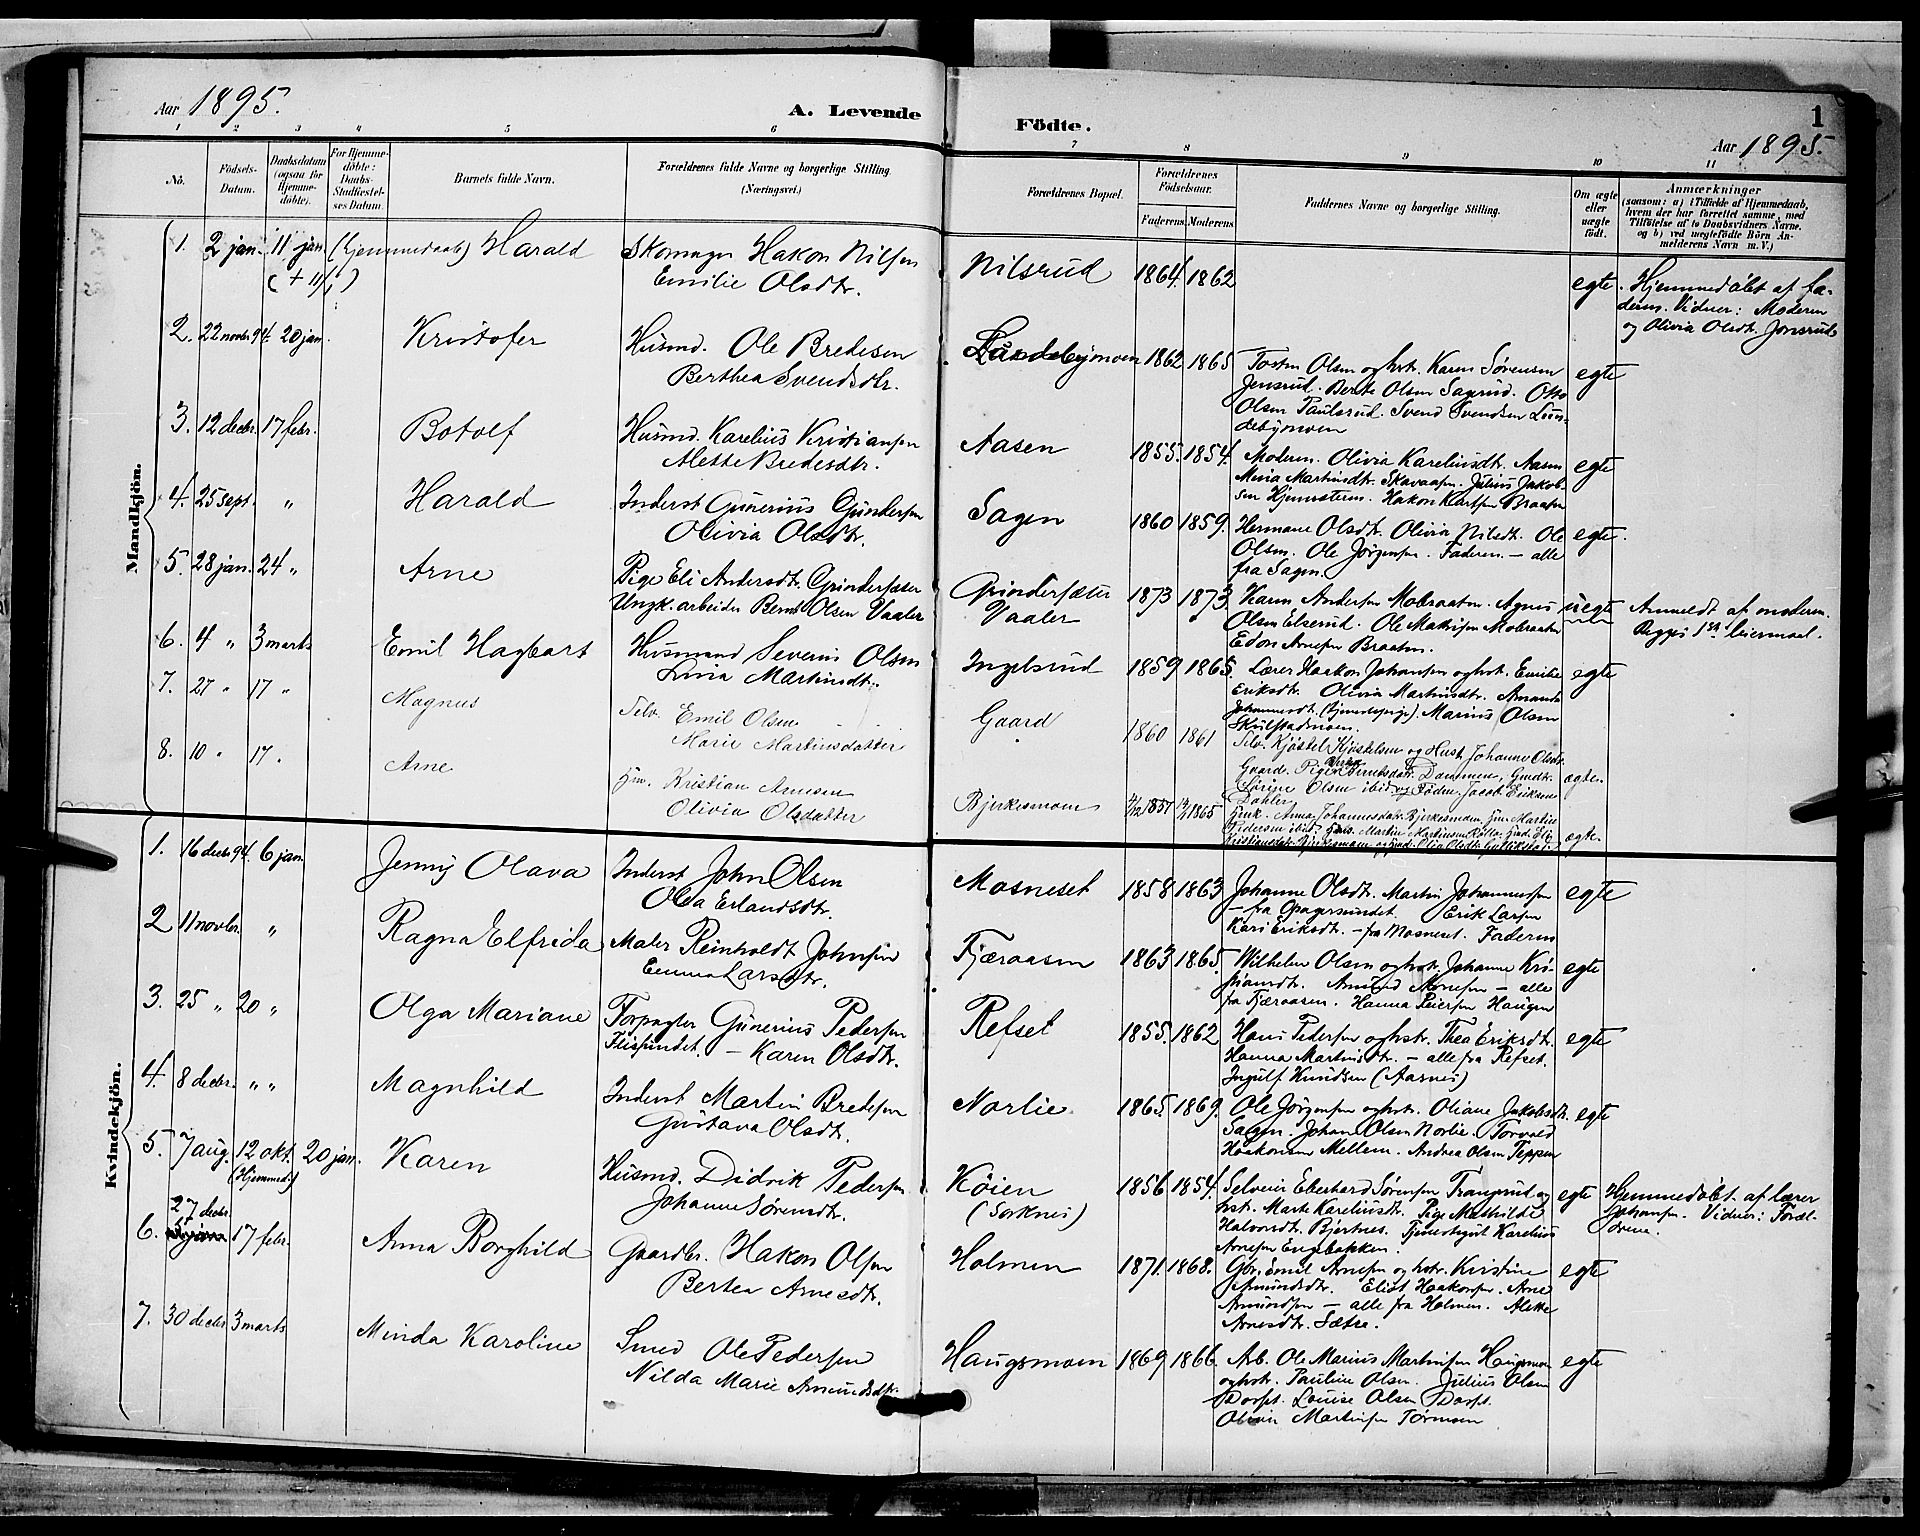 Aar 1895.
A. Levende Födte.
1
Aar 1895.
1 2 3 4 5 6 7 8 9 10 11
No.
Födsels-Datum.
Daabsdatum (ogsaa for Hjemmedöbte).
For Hjemmedöbte: Daabs-Stadfæstelses Datum.
Barnets fulde Navn.
Forældrenes fulde Navne og borgerlige Stilling. (Næringsvei.)
Forældrenes Bopæl.
Forældrenes Födselsaar.
Faderens. Moderens.
Faddernes Navne og borgerlige Stilling.
Om ægte eller uægte födt.
Anmærkninger
(saasom: a) i Tilfælde af Hjemmedaab, hvem der har forrettet samme, med Tilföielse af to Daabsvidners Navne, og b) ved uegtefödte Börn Anmelderens Navn m. V.)
Mandkjön.
1. 2 jan. 11 jan. (hjemmedaab) Harald
(+ 11/1)
Skomager Hakon Nilsen
Emilie Olsdtr.
Nilsrud 1864 1862 egte
Hjemmedöbt af faderen. Vidner: Moderen
og Olivia Olsdt. Jonsrud
2. 22 novbr 94. 20 jan. Kristofer
Husmd. Ole Bredesen
Berthea Svendsdtr.
Lundebymoen 1862 1865
Torsten Olsen og hst. Karen Sörensen
Jensrud. Bertte Olsen Sagrud. Otto
Olsen Paulsrud. Svend Svendsen Lundebymoen
egte
3. 12 decbr. 17 febr. Botolf
Husmd. Karelius Kristiansen
Alette Bredesdtr.
Aasen 1855. 1854.
Moderen. Olivia Kareliusdtr. Aasen
Mina Martinsdtr. Skavaasen. Julius Jakobsen
Hakon Braaten
egte
4. 25 sept. " Harald
Inderst Gunerius Gundersen
Olivia Olsdtr.
Sagen 1860 1859.
Hermane Olsdtr. Olivia Nilsdt. Ole
Olsen. Ole Jörgensen. Faderen. – alle
fra Sagen.
egte.
5. 28 jan. 24 " Arne
Pige Eli Andersdtr. Grindersæter
Ungk. arbeider Bernt Olsen Vaaler
Grindersæter
Vaaler
1873 1873
Karen Andersen Agnes
Olsen Elserud. Ole Mathisen
Edon Arnesen Braaten.
uegte
Anmeldt af moderen.
Begges 1ste leiermaal.
6. 4 " 3 marts Emil Hagbart
Husmand Severin Olsen
Lina Martinsdt.
Ingelsrud 1859 1865
Lærer Haakon Johansen og hst. Emilie
Eriksdtr. Olivia Martinsdtr. Amanda
Johannesdt. (tjenestepige). Marius Olsen
Skulstadmoen.
egte
7. 27 " 17 " Magnus
Selv. Emil Olsen
Marie Martinsdatter
Gaard 1860 1861
Selv. Kjöstel Kjöstelsen og Hust. Johanne Olsdtr.
Gaard. Pige Dammen, Gmdt.
Sörine Olsen ibid og Faderen. Jacob Eriksen
Dahler
ægte.
8. 10 " 17 " Arne
Hm. Kristian Arnesen
Olivia Olsdatter
Bjerkesmoen 1857 1865
Enk. Anna Johannesdatr. Bjerkesmoen, Hm. Martin
Pedersen ibid. Martin Martinsen
ægte.
Kvindekjön.
1. 16 decbr 94. 6 jan. Jenny Olava
Inderst John Olsen
Olea Erlandsdtr.
Mosneset 1858 1863
Johanne Olsdtr. Martin Johannessen
– fra Opagersundet. Erik Larsen
Kari Eriksdt. – fra Mosneset. Faderen
egte
2 11 novbr. " Ragna Elfrida
Maler Reinholdt Johnsen
Emma Larsdtr.
Fjæraasen 1863 1865.
Wilhelm Olsen og hst. Johanne Kristiansdt.
Amund Arnesen – alle
fra Fjæraasen. Hanna Peiersen Haugen
egte
3. 25 " 20 " Olga Mariane
Forpagter Gunerius Pedersen
Flissundet. – Karen Olsdtr.
Refset 1855. 1862
Hans Pedersen og hst. Thea Eriksdt.
Hanna Martinsdtr. – alle fra Refset.
Ingulf Knudsen (Aasnes)
egte
4. 8 decbr. " " Magnhild
Inderst Martin Bredesen
Gustava Olsdt.
Norlie 1865. 1869.
Ole Jörgensen og hst. Oliane Jakobsdt.
Sagen. Johan Olsen Norlie. Torvald
Haakonsen Mellem. Andrea Olsen Teppen
egte
5. 7 aug. 12 okt. 20 jan. Karen
(Hjemmed.)
Husmd. Didrik Pedersen
Johanne Sörensdtr.
Köien
(Sorknes)
1856 1854
Selveier Eberhard Sörensen Trangsrud og
hst. Marte Kareliusdt. Pige Mathilde
Halvorsdt. Bjertnes. Tjenestegut Karelius
Arnesen Engebakken.
egte
Hjemmedöbt af lærer
Johansen. Vidner: Forældrene.
6. 27 decbr. 17 febr. Anna Borghild
Gaardbr. Hakon Olsen
Berthea Arnesdtr.
Holmen 1871. 1868.
Gbr. Emil Arnesen og hst. Kirstine
Amundsdtr. Elise Haakonsen. Arne
Amundsen – alle fra Holmen. Alette
Arnesdtr. Sætre.
egte
7. 30 decbr 3 marts Minda Karoline
Smed Ole Pedersen
Nilda Marie Amundsdtr.
Haugsmoen 1869 1866.
Arb. Ole Marius Martinsen Haugsmoen
og hst. Pauline Olsen. Julius Olsen
Dorpt. Louise Olsen Dorpt.
Olivia Martinsen Törmoen
egte